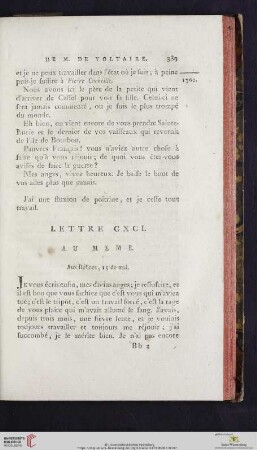 DE M. DE VOLTAIRE. 387
et je ne peux travailler dans l'état où je suis; à peine
puis-je suffire à Pierre Corneille.
1762.
Nous avons ici le père de la petite qui vient
d'arriver de Cassel pour voir sa fille. Celui-ci ne
sera jamais commenté, ou je suis le plus trompé
du monde.
Eh bien, on vient encore de vous prendre Sainte-
Lucie et le dernier de vos vaisseaux qui revenait
de l'île de Bourbon.
Pauvres Français! vous n'aviez autre chose à
faire qu'à vous réjouir; de quoi vous êtes-vous
avisés de faire la guerre?
Mes anges, vivez heureux. Je baise le bout de
vos ailes plus que jamais.
J'ai une fluxion de poitrine, et je cesse tout
travail.
LETTRE CXCI.
AU MEME.
Aux Délices, 15 de mai.
JE vous écris enfin, mes divins anges; je ressuscite, et
il est bon que vous sachiez que c'est vous qui m'aviez
tué; c'est le tripot, c'est un travail forcé, c'est la rage
de vous plaire qui m'avait allumé le sang. J'avais,
depuis trois mois, une fièvre lente, et je voulais
toujours travailler et toujours me réjouir; j'ai
succombé, je le mérite bien. Je n'ai pas encore
Bb 2